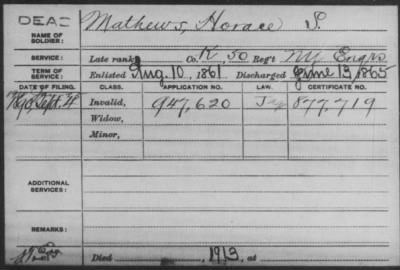 DEAD Mathews, Horace S.
NAME OF SOLDIER:
SERVICE: Late rank, Co. K, 50 Reg't NY Engrs
TERM OF SERVICE: Enlisted Aug. 10, 1861 Discharged June 13, 1865
DATE OF FILING. CLASS. APPLICATION NO. LAW. CERTIFICATE NO.
Sept. 4 Invalid, 947,620 877,719
Widow,
Minor,
ADDITIONAL SERVICES:
REMARKS:
Died 1913, at